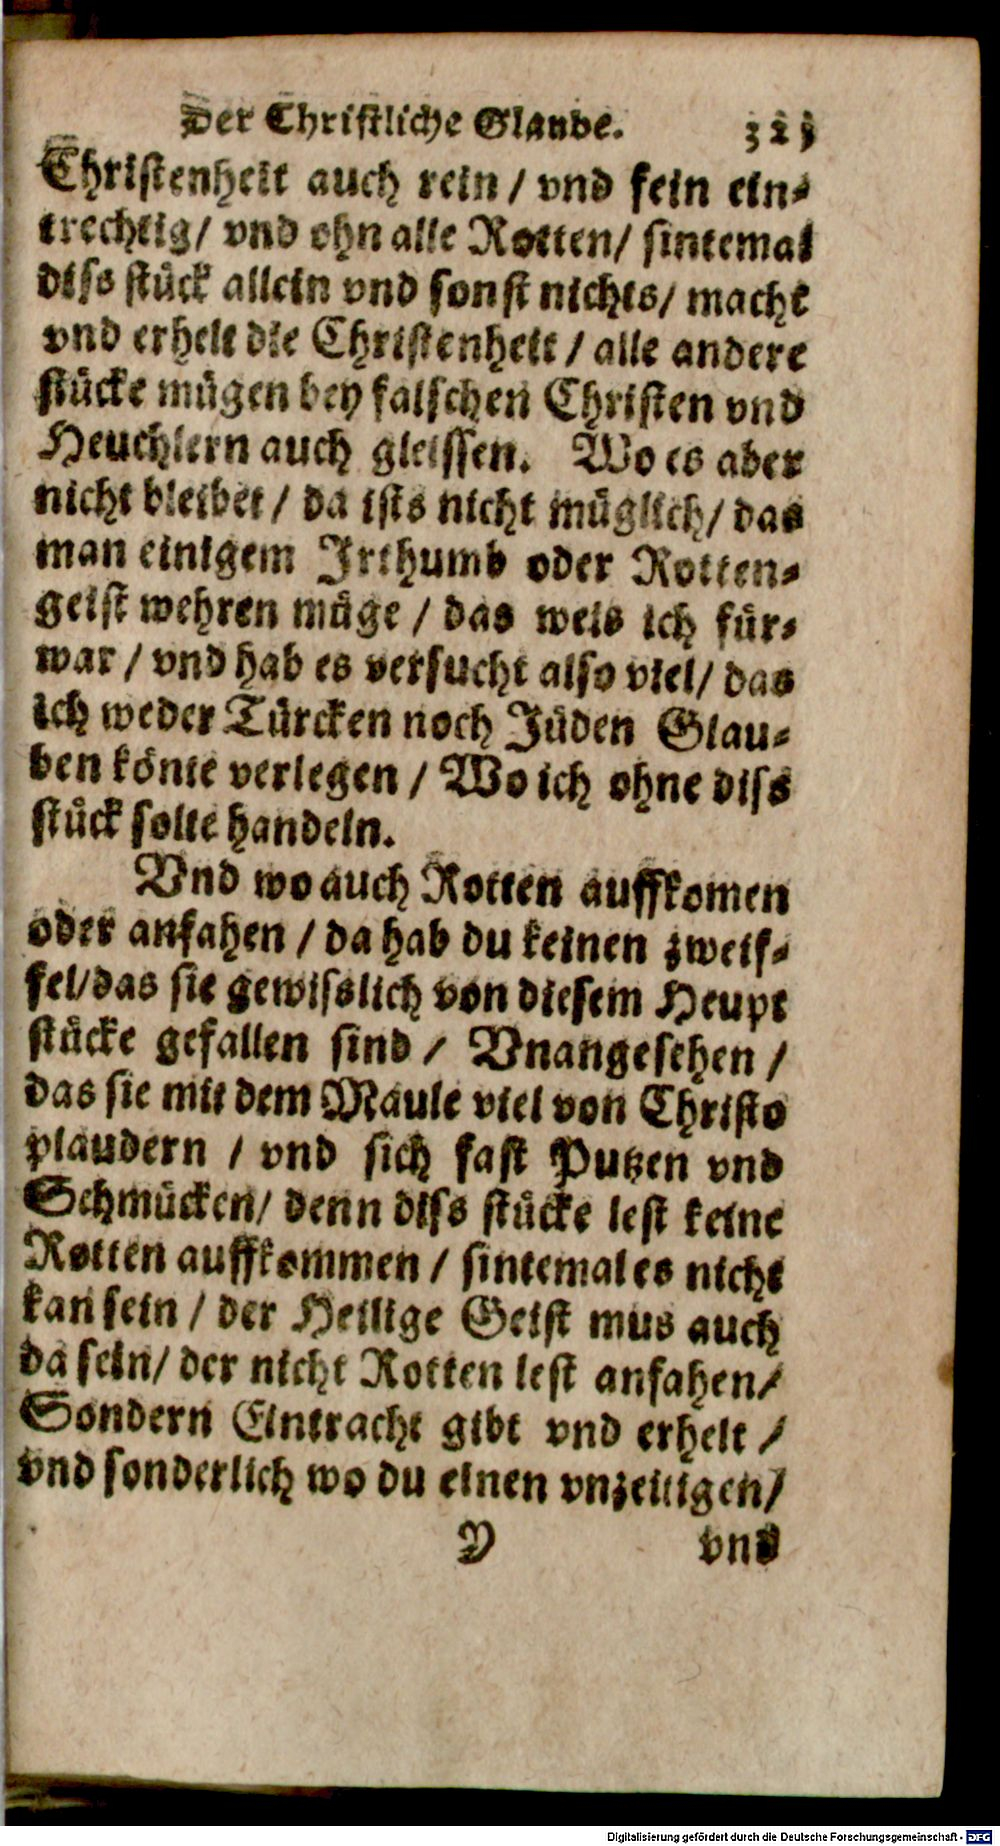 Der Christliche Glaube.
Christenheit auch rein / vnd fein ein⸗
trechtig / vnd ohn alle Rotten / sintemal
diss stück allein vnd sonst nichts / macht
vnd erhelt die Christenheit / alle andere
stücke mügen bey falschen Christen vnd
Heuchlern auch gleissen. Wo es aber
nicht bleibet / da ists nicht müglich / das
man einigem Irthumb oder Rotten⸗
geist wehren müge / das weis ich für⸗
war / vnd hab es versucht also viel / das
ich weder Türcken noch Jüden Glau⸗
ben könte verlegen / Wo ich ohne diss
stück solte handeln.
Vnd wo auch Rotten auffkomen
oder anfahen / da hab du keinen zweif⸗
fel / das sie gewisslich von diesem Heupt
stücke gefallen sind / Vnangesehen /
das sie mit dem Maule viel von Christo
plaudern / vnd sich fast Putzen vnd
Schmücken / denn diss stücke lest keine
Rotten auffkommen / sintemal es nicht
kan sein / der Heilige Geist mus auch
da sein / der nicht Rotten lest anfahen /
Sondern Eintracht gibt vnd erhelt /
vnd sonderlich wo du einen vnzeitigen /
Y vnd
Digitalisierung gefördert durch die Deutsche Forschungsgemeinschaft - DFG